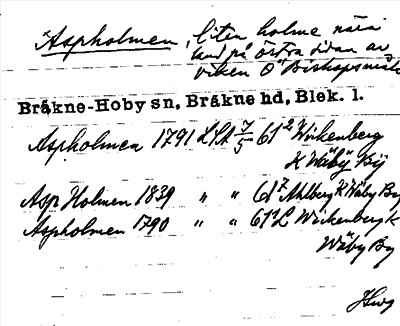 Aspholmen, liten holme nära
land på östra sidan av
viken Ö Bishopsmåla
Bräkne-Hoby sn, Bräkne hd, Blek. l.
Aspholmen 1791 LSA 7/5 61² Wirkenberg
K Wäby By
Asp Holmen 1839 " " 61⁷ Ahlberg K Wäby By
Aspholmen 1790 " " 61¹ L Wirkenberg K
Wäby By